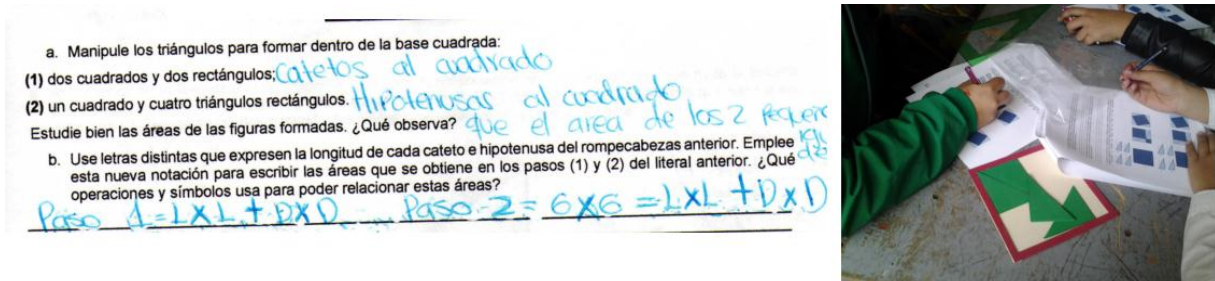 a. Manipule los triángulos para formar dentro de la base cuadrada:
(1) dos cuadrados y dos rectángulos; Catetos al cuadrado
(2) un cuadrado y cuatro triángulos rectángulos. Hipotenusas al cuadrado
Estudie bien las áreas de las figuras formadas. ¿Qué observa? que el area de los 2
b. Use letras distintas que expresen la longitud de cada cateto e hipotenusa del rompecabezas anterior. Emplee
esta nueva notación para escribir las áreas que se obtiene en los pasos (1) y (2) del literal anterior. ¿Qué
operaciones y símbolos usa para poder relacionar estas áreas?
Paso 1=LXL+DXD Paso 2= 6X6=LXL+DXD